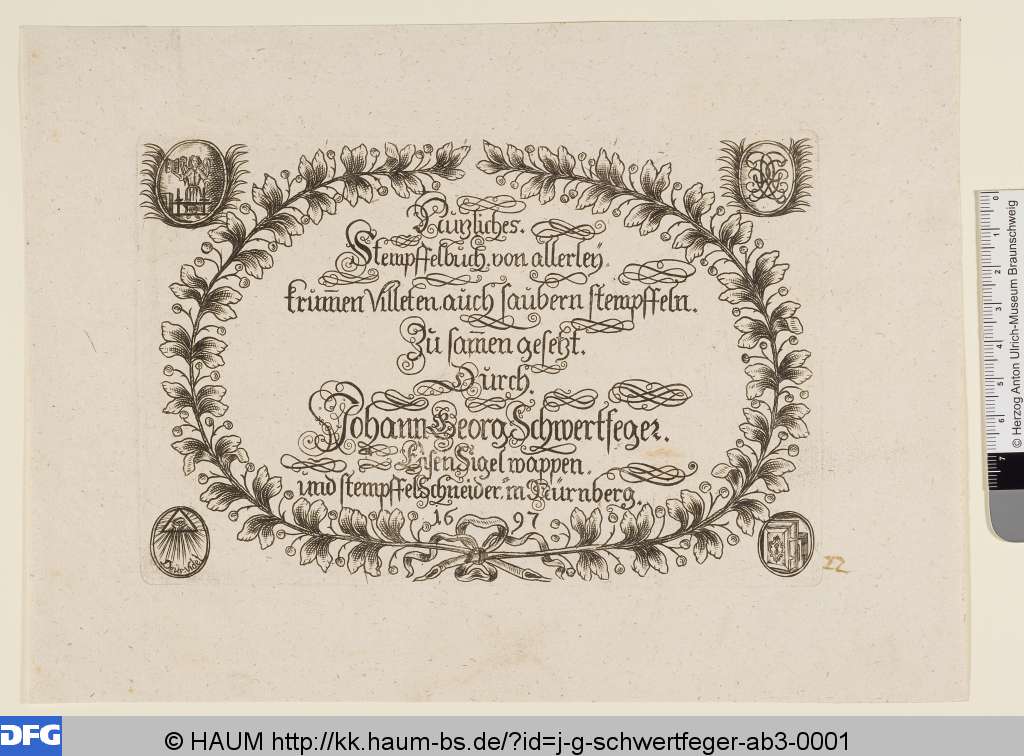 Nuzliches.
Stempffelbuch von allerleÿ.
krum̅en Villeten. auch saubern stempffeln.
Zu sam̅en gesetzt.
Durch.
Johann Georg Schwertfeger.
Eisen Sigel wappen.
und stempffelschneider. in Nürnberg.
1697
22
0 1 2 3 4 5 6 7
© Herzog Anton Ulrich-Museum Braunschweig
DFG
© HAUM http://kk.haum-bs.de/?id=j-g-schwertfeger-ab3-0001